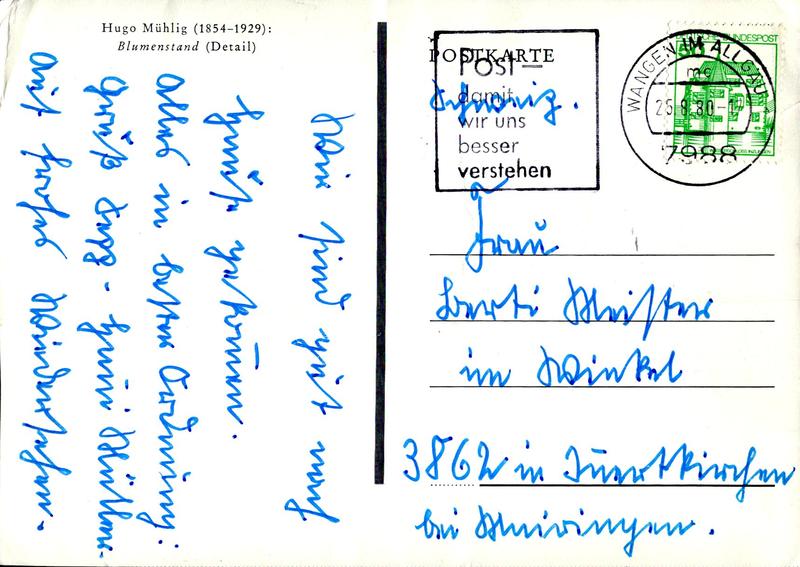 Hugo Mühlig (1854–1929):
Blumenstand (Detail)
Wir sind gut nach
Haus gekommen.
Alles in bester Ordnung:
Gruß Sepp -
Auf frohes Wiedersehen-
POSTKARTE
Post-
damit
wir uns
besser
verstehen
WANGEN IM ALLGÄU
mg
25.8.80-17
7988
50
DEUTSCHE BUNDESPOST
Schweiz.
Frau
Berti Meister
im Winkel
3862 in Inertkirchen
bei Meiringen.